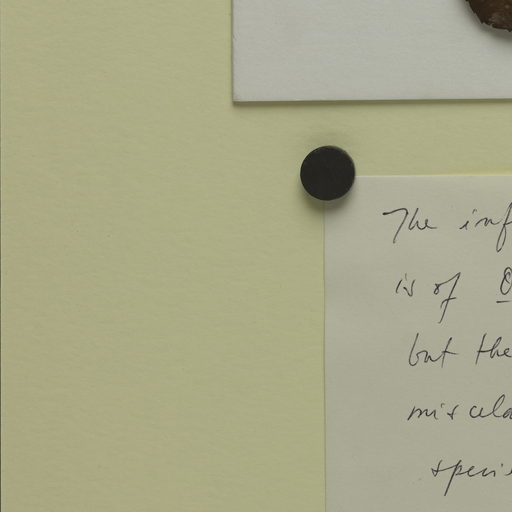 The inf
is of O
but the
miscela
speci